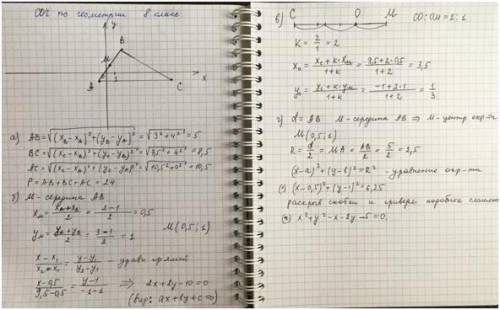 СОЧ по геометрии 8 класс
y
B
M
1
x
A
C
а) AB = √((x_B - x_A)² + (y_B - y_A)²) = √(3² + 4²) = 5
BC = √((x_C - x_B)² + (y_C - y_B)²) = √(7,5² + 4²) = 8,5
AC = √((x_C - x_A)² + (y_C - y_A)²) = √(10,5² + 0²) = 10,5
P = AB + BC + AC = 24
б) M - середина AB
x_M = (x_A + x_B)/2 = (2 - 1)/2 = 0,5
y_M = (y_A + y_B)/2 = (3 - 1)/2 = 1
M(0,5; 1)
(x - x₁)/(x₂ - x₁) = (y - y₁)/(y₂ - y₁) - уравн. прямой
(x - 0,5)/(9,5 - 0,5) = (y - 1)/(-1 - 1) ⇒ 2x + 2y - 10 = 0
(вид: ax + by + c = 0)
в)
C O M
CO:OM = 2:1
K = 2/1 = 2
x_o = (x_C + k·x_M)/(1 + k) = (9,5 + 2·0,5)/(1 + 2) = 3,5
y_o = (y_C + k·y_M)/(1 + k) = (-1 + 2·1)/(1 + 2) = 1/3
г) d = AB M - середина AB ⇒ M - центр окр-ти
M(0,5; 1)
R = d/2 = MA = AB/2 = 5/2 = 2,5
(x - a)² + (y - b)² = R² - уравнение окр-ти
(x - 0,5)² + (y - 1)² = 6,25
раскрыв скобки и приведя подобные
x² + y² - x - 2y - 5 = 0